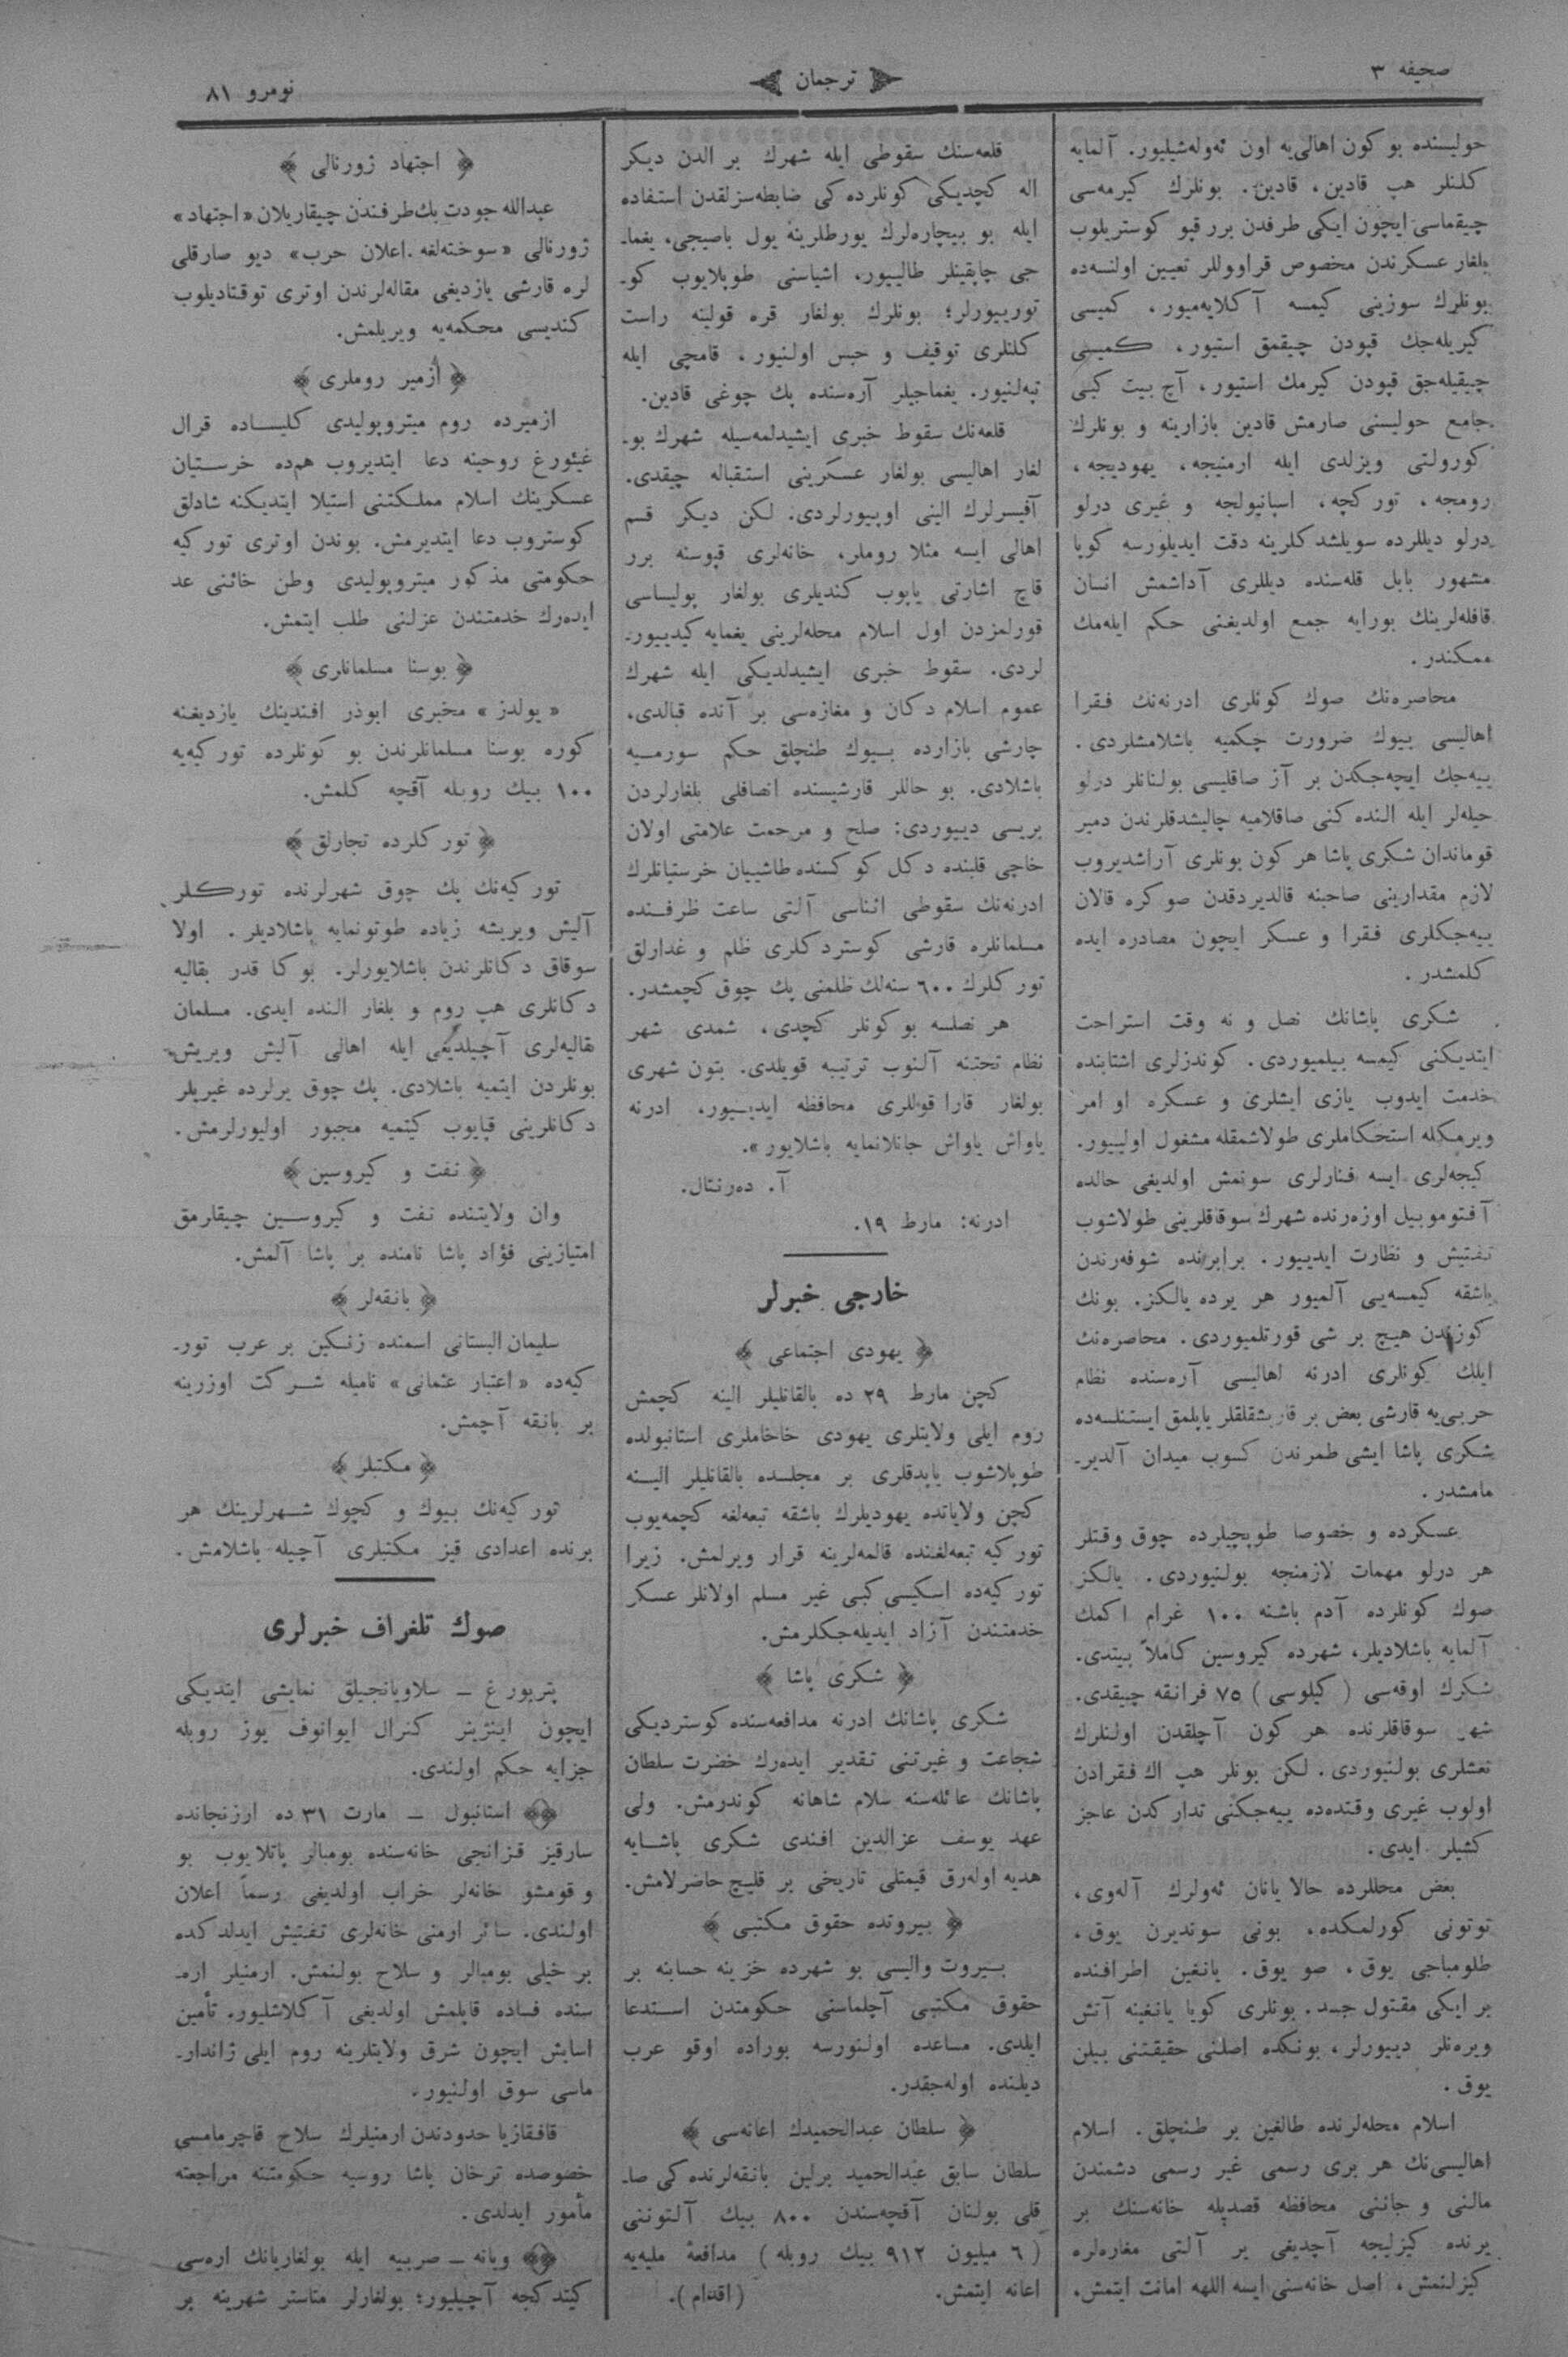 صحیفه ۳
ترجمان
نومرو ۸۱
حولیسنده بو كون اهالی‌یه اون ئه‌وله‌شیلیور. آلمایه
كلنلر هپ قادین، قادین. بونلرك كیرمه‌سی
چیقماسی ایچون ایكی طرفدن برر قپو كوستریلوب
بلغار عسكرندن مخصوص قراووللر تعیین اولنسه‌ده
بونلرك سوزینی كیمسه آكلایه‌میور. كمیسی
كیریله‌جك قپودن چیقمق استیور، كمیسی
چیقیله‌جق قپودن كیرمك استیور، آچ بیت كبی
جامع حولیسنی صارمش قادین بازارینه و بونلرك
كورولتی ویزلدی ایله ارمنیجه، یهودیجه،
رومجه، توركچه، اسپانیولجه و غیری درلو
درلو دیللرده سویلشدكلرینه دقت ایدیلورسه كویا
مشهور بابل قله‌سنده دیللری آداشمش انسان
قافله‌لرینك بورایه جمع اولدیغنی حكم ایله‌مك
ممكندر.
محاصره‌نك صوك كونلری ادرنه‌نك فقرا
اهالیسی بیوك ضرورت چكمیه باشلامشلردی.
ییه‌جك ایچه‌جكدن بر آز صاقلیسی بولنانلر درلو
حیله‌لر ایله النده‌كنی صاقلامیه چالیشدقلرندن دمیر
قوماندان شكری پاشا هر كون بونلری آراشدیروب
لازم مقدارینی صاحبنه قالدیردقدن صوكره قالان
ییه‌جكلری فقرا و عسكر ایچون مصادره ایده
كلمشدر.
شكری پاشانك نصل و نه وقت استراحت
ایتدیكنی كیمسه بیلمیوردی. كوندزلری اشتابنده
خدمت ایدوب یازی ایشلری و عسكره اوامر
ویرمكله استحكاملری طولاشمقله مشغول اولییور.
كیجه‌لری ایسه فنارلری سونمش اولدیغی حالده
آفتوموبیل اوزه‌رنده شهرك سوقاقلرینی طولاشوب
تفتیش و نظارت ایدییور. برابرنده شوفه‌رندن
باشقه كیمسه‌یی آلمیور هر یرده یالكز. بونك
كوزندن هیچ بر شی قورتلمیوردی. محاصره‌نك
ایلك كونلری ادرنه اهالیسی آره‌سنده نظام
حربی‌یه قارشی بعض بر قاریشقلقلر یاپلمق ایستنلسه‌ده
شكری پاشا ایشی طمرندن كسوب میدان آلدیر-
مامشدر.
عسكرده و خصوصا طوپچیلرده چوق وقتلر
هر درلو مهمات لازمنجه بولنیوردی. یالكز
صوك كونلرده آدم باشنه ۱۰۰ غرام اكمك
آلمایه باشلادیلر، شهرده كیروسین كاملاً بیتدی.
شكرك اوقه‌سی (كیلوسی) ۷۵ فرانقه چیقدی.
شهر سوقاقلرنده هر كون آچلقدن اولنلرك
نعشلری بولنیوردی. لكن بونلر هپ اك فقرادن
اولوب غیری وقتده‌ده ییه‌جكنی تداركدن عاجز
كشیلر ایدی.
بعض محللرده حالا یانان ئه‌ولرك آله‌وی،
توتونی كورلمكده، بونی سوندیرن یوق،
طلومباجی یوق، صو یوق. یانغین اطرافنده
بر ایكی مقتول جسد. بونلری كویا یانغینه آتش
ویره‌نلر دییورلر، بونكده اصلنی حقیقتنی بیلن
یوق.
اسلام محله‌لرنده طالغین بر طنچلق. اسلام
اهالیسی‌نك هر بری رسمی غیر رسمی دشمندن
مالنی و جاننی محافظه قصدیله خانه‌سنك بر
یرنده كیزلیجه آچدیغی یر آلتی مغاره‌لره
كیزلنمش، اصل خانه‌سنی ایسه اللهه امانت ایتمش.
قلعه‌سنك سقوطی ایله شهرك بر الدن دیكر
اله كچدیكی كونلرده‌كی ضابطه‌سزلقدن استفاده
ایله بو بیچاره‌لرك یورطلرینه یول باصیجی، یغما-
جی چاپقینلر طالییور، اشیاسنی طوپلایوب كو-
تورییورلر؛ بونلرك بولغار قره قولینه راست
كلنلری توقیف و حبس اولنیور، قامچی ایله
تپه‌لنیور. یغماجیلر آره‌سنده پك چوغی قادین.
قلعه‌نك سقوط خبری ایشیدلمه‌سیله شهرك بو-
لغار اهالیسی بولغار عسكرینی استقباله چیقدی.
آفیسرلرك الینی اوپیورلردی. لكن دیكر قسم
اهالی ایسه مثلا روملر، خانه‌لری قپوسنه برر
قاچ اشارتی یاپوب كندیلری بولغار پولیساسی
قورلمزدن اول اسلام محله‌لرینی یغمایه كیدییور-
لردی. سقوط خبری ایشیدلدیكی ایله شهرك
عموم اسلام دكان و مغازه‌سی بر آنده قپالدی،
چارشی بازارده بیوك طنچلق حكم سورمیه
باشلادی. بو حاللر قارشیسنده انصافلی بلغارلردن
بریسی دییوردی: صلح و مرحمت علامتی اولان
خاچی قلبنده دكل كوكسنده طاشییان خرستیانلرك
ادرنه‌نك سقوطی اثناسی آلتی ساعت ظرفنده
مسلمانلره قارشی كوستردكلری ظلم و غدارلق
توركلرك ۶۰۰ سنه‌لك ظلمنی پك چوق كچمشدر.
هر نصلسه بو كونلر كچدی، شمدی شهر
نظام تحتنه آلنوب ترتیبه قویلدی. بتون شهری
بولغار قاراقوللری محافظه ایدییور، ادرنه
یاواش یاواش جانلانمایه باشلایور».
آ. ده‌رنتال.
ادرنه: مارط ۱۹.
خارجی خبرلر
﴿ یهودی اجتماعی ﴾
كچن مارط ۲۹ ده بالقانلیلر الینه كچمش
روم ایلی ولایتلری یهودی خاخاملری استانبولده
طوپلاشوب یاپدقلری بر مجلسده بالقانلیلر الینه
كچن ولایاتده یهودیلرك باشقه تبعه‌لغه كچمه‌یوب
توركیه تبعه‌لغنده قالمه‌لرینه قرار ویرلمش. زیرا
توركیه‌ده اسكیسی كبی غیر مسلم اولانلر عسكر
خدمتندن آزاد ایدیله‌جكلرمش.
﴿ شكری پاشا ﴾
شكری پاشانك ادرنه مدافعه‌سنده كوستردیكی
شجاعت و غیرتنی تقدیر ایده‌رك حضرت سلطان
پاشانك عائله‌سنه سلام شاهانه كوندرمش. ولی
عهد یوسف عزالدین افندی شكری پاشایه
هدیه اوله‌رق قیمتلی تاریخی بر قلیچ حاضرلامش.
﴿ بیروتده حقوق مكتبی ﴾
بیروت والیسی بو شهرده خزینه حسابنه بر
حقوق مكتبی آچلماسنی حكومتدن استدعا
ایلدی. مساعده اولنورسه بوراده اوقو عرب
دیلنده اوله‌جقدر.
﴿ سلطان عبدالحمیدك اعانه‌سی ﴾
سلطان سابق عبدالحمید برلین بانقه‌لرنده‌كی صا-
قلی بولنان آقچه‌سندن ۸۰۰ بیك آلتوننی
(۶ میلیون ۹۱۲ بیك روبله) مدافعهٔ ملیه‌یه
اعانه ایتمش. (اقدام).
﴿ اجتهاد ژورنالی ﴾
عبدالله جودت بك طرفندن چیقاریلان «اجتهاد»
ژورنالی «سوخته‌لغه اعلان حرب» دیو صارقلی
لره قارشی یازدیغی مقاله‌لرندن اوتری توقتادیلوب
كندیسی محكمه‌یه ویریلمش.
﴿ ازمیر روملری ﴾
ازمیرده روم میتروپولیدی كلیساده قرال
غیئورغ روحینه دعا ایتدیروب هم‌ده خرستیان
عسكرینك اسلام مملكتنی استیلا ایتدیكنه شادلق
كوستروب دعا ایتدیرمش. بوندن اوتری توركیه
حكومتی مذكور میتروپولیدی وطن خائنی عد
ایده‌رك خدمتندن عزلنی طلب ایتمش.
﴿ بوسنا مسلمانلری ﴾
«یولدز» مخبری ابوذر افندینك یازدیغنه
كوره بوسنا مسلمانلرندن بو كونلرده توركیه‌یه
۱۰۰ بیك روبله آقچه كلمش.
﴿ توركلرده تجارلق ﴾
توركیه‌نك پك چوق شهرلرنده توركلر
آلیش ویریشه زیاده طوتونمایه باشلادیلر. اولا
سوقاق دكانلرندن باشلایورلر. بوكا قدر بقالیه
دكانلری هپ روم و بلغار النده ایدی. مسلمان
بقالیه‌لری آچیلدیغی ایله اهالی آلیش ویریش
بونلردن ایتمیه باشلادی. پك چوق یرلرده غیریلر
دكانلرینی قپایوب كیتمیه مجبور اولیورلرمش.
﴿ نفت و كیروسین ﴾
وان ولایتنده نفت و كیروسین چیقارمق
امتیازینی فؤاد پاشا نامنده بر پاشا آلمش.
﴿ بانقه‌لر ﴾
سلیمان البستانی اسمنده زنكین بر عرب تور-
كیه‌ده «اعتبار عثمانی» نامیله شركت اوزرینه
بر بانقه آچمش.
﴿ مكتبلر ﴾
توركیه‌نك بیوك و كچوك شهرلرینك هر
برنده اعدادی قیز مكتبلری آچیله باشلامش.
صوك تلغراف خبرلری
پتربورغ — سلاویانجیلق نمایشی ایتدیكی
ایچون اینژینر كنرال ایوانوف یوز روبله
جزایه حكم اولندی.
استانبول — مارت ۳۱ ده ارزنجانده
سارقیز قزانجی خانه‌سنده بومبالر پاتلایوب بو
و قومشو خانه‌لر خراب اولدیغی رسماً اعلان
اولندی. سائر ارمنی خانه‌لری تفتیش ایدلدكده
بر خیلی بومبالر و سلاح بولنمش. ارمنیلر اره-
سنده فساده قاپلمش اولدیغی آكلاشلیور. تأمین
اسایش ایچون شرق ولایتلرینه روم ایلی ژاندار-
ماسی سوق اولنیور.
قافقازیا حدودندن ارمنیلرك سلاح قاچرمامسی
خصوصده ترخان پاشا روسیه حكومتینه مراجعته
مأمور ایدلدی.
ویانه — صربیه ایله بولغاریانك اره‌سی
كیتدكجه آچیلیور؛ بولغارلر مناستر شهرینه بر